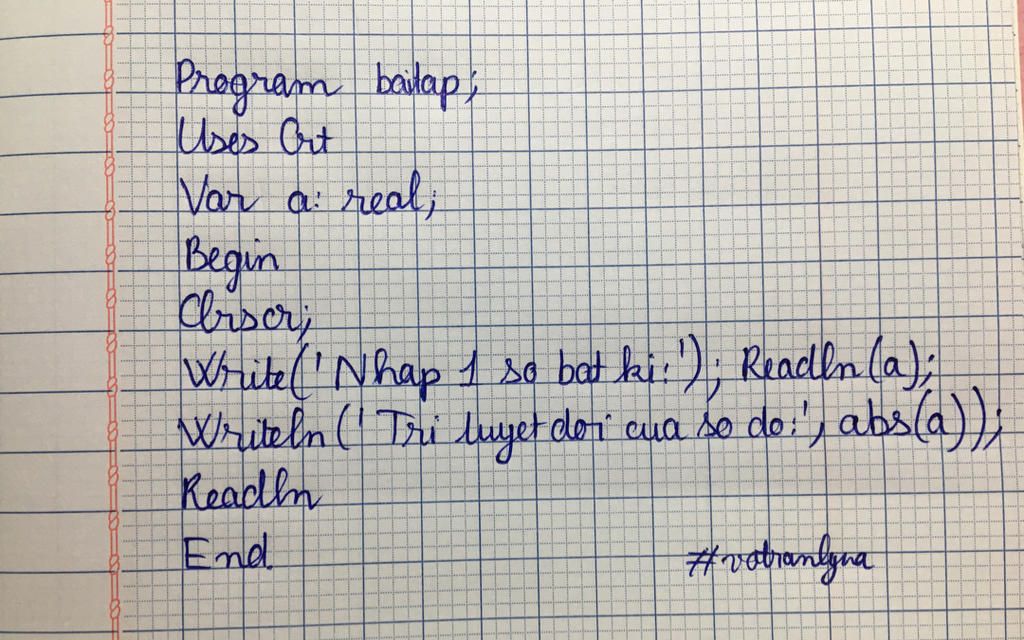 Program baitap;
Uses Crt
Var a: real;
Begin
Clrscr;
Write('Nhap 1 so bat ki:'); Readln(a);
Writeln('Tri tuyet doi cua so do:', abs(a));
Readln
End.
#votranlyna